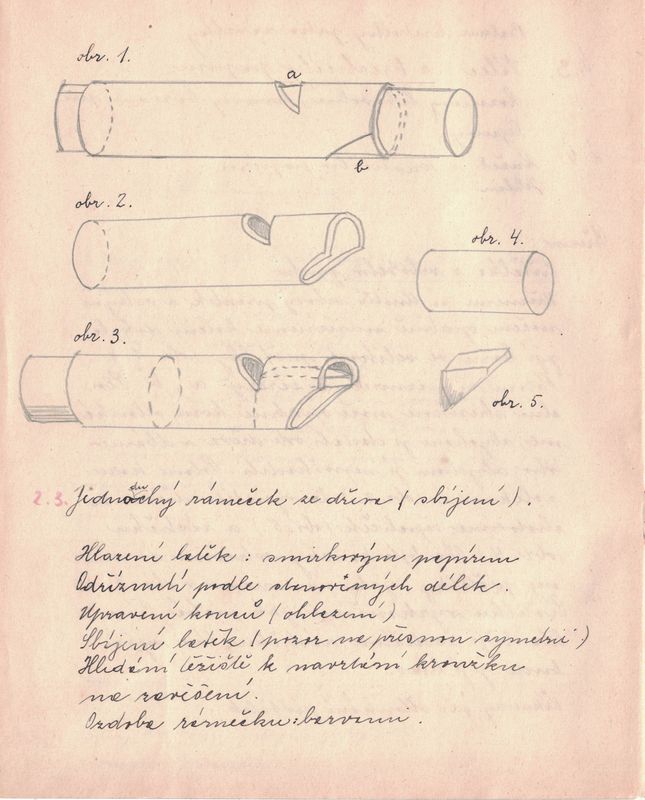 obr. 1.
a
b
obr. 2.
obr. 4.
obr. 3.
obr. 5.
2.3. Jednoduchý rámeček ze dřeva ( sbíjení ).
Hlazení latěk : smirkovým papírem
Odříznutí podle stanovených délek.
Upravení konců ( ohlazení )
Sbíjení latěk ( pozor na přesnou symetrii ! )
Hledání těžiště k navrtání kroužku
na zavěšení.
Ozdoba rámečku : barvami .